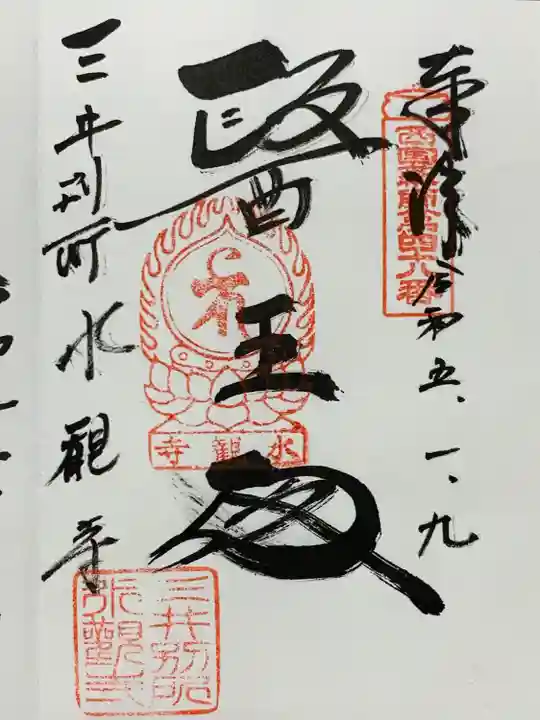 奉拝 令和五、一、九
西國薬師第四十八番
醫王殿
水觀寺
三井別所 水觀寺
三井別所
水觀寺